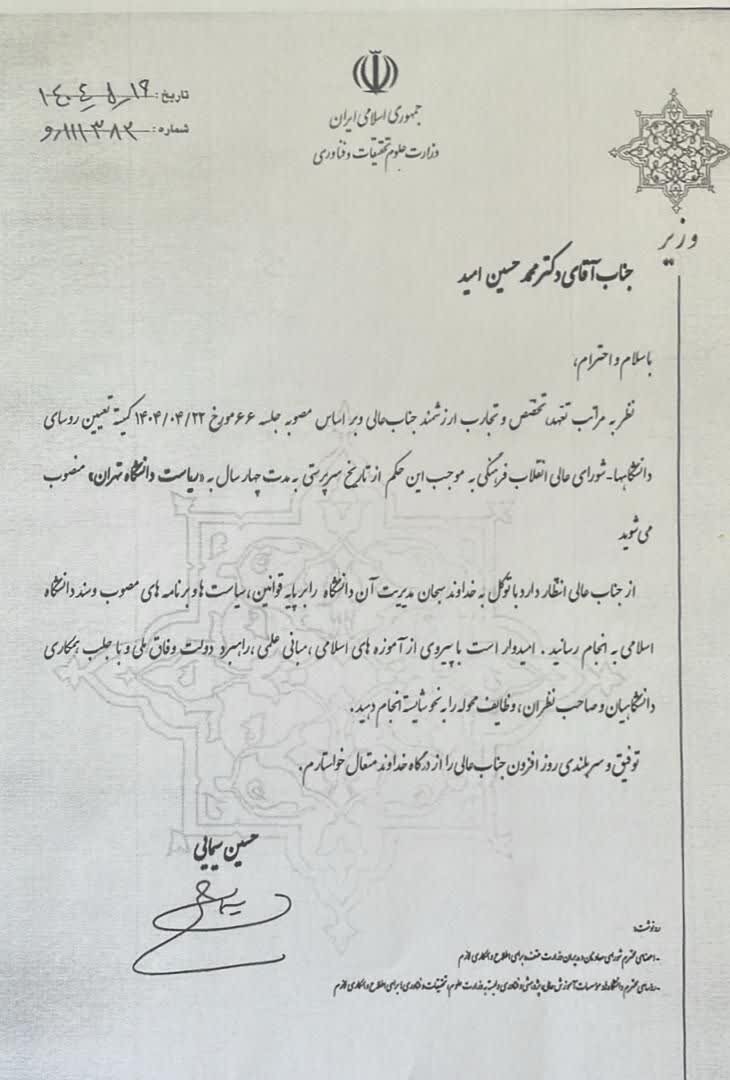 جمهوری اسلامی ایران
وزارت علوم تحقیقات و فناوری
تاریخ: ۱۴۰۴/۵/۱۹
شماره: ۱۱۱۳۸۲/و
وزیر
جناب آقای دکتر محمد حسین امید
باسلام و احترام،
نظر به مراتب تعهد، تخصص و تجارب ارزشمند جناب‌عالی و بر اساس مصوبه جلسه ۶۶ مورخ ۱۴۰۴/۰۴/۲۲ کمیته تعیین روسای
دانشگاهها-شورای عالی انقلاب فرهنگی به موجب این حکم از تاریخ سرپرستی به مدت چهار سال به «ریاست دانشگاه تهران» منصوب
می شوید
از جناب عالی انتظار دارد با توکل به خداوند سبحان مدیریت آن دانشگاه را بر پایه قوانین، سیاست ها و برنامه های مصوب و سند دانشگاه
اسلامی به انجام رسانید. امیدوار است با پیروی از آموزه های اسلامی، مبانی علمی، راهبرد دولت وفاق ملی و با جلب همکاری
دانشگاهیان و صاحب نظران، وظایف محوله را به نحو شایسته انجام دهید.
توفیق و سربلندی روز افزون جناب‌عالی را از درگاه خداوند متعال خواستارم.
حسین سیمایی
رونوشت:
-اعضای محترم شورای معاونان و مدیران وزارت متبوع برای اطلاع و همکاری لازم
-روسای محترم دانشگاه‌ها و موسسات آموزش عالی، پژوهشی و فناوری وابسته به وزارت علوم، تحقیقات و فناوری برای اطلاع و همکاری لازم